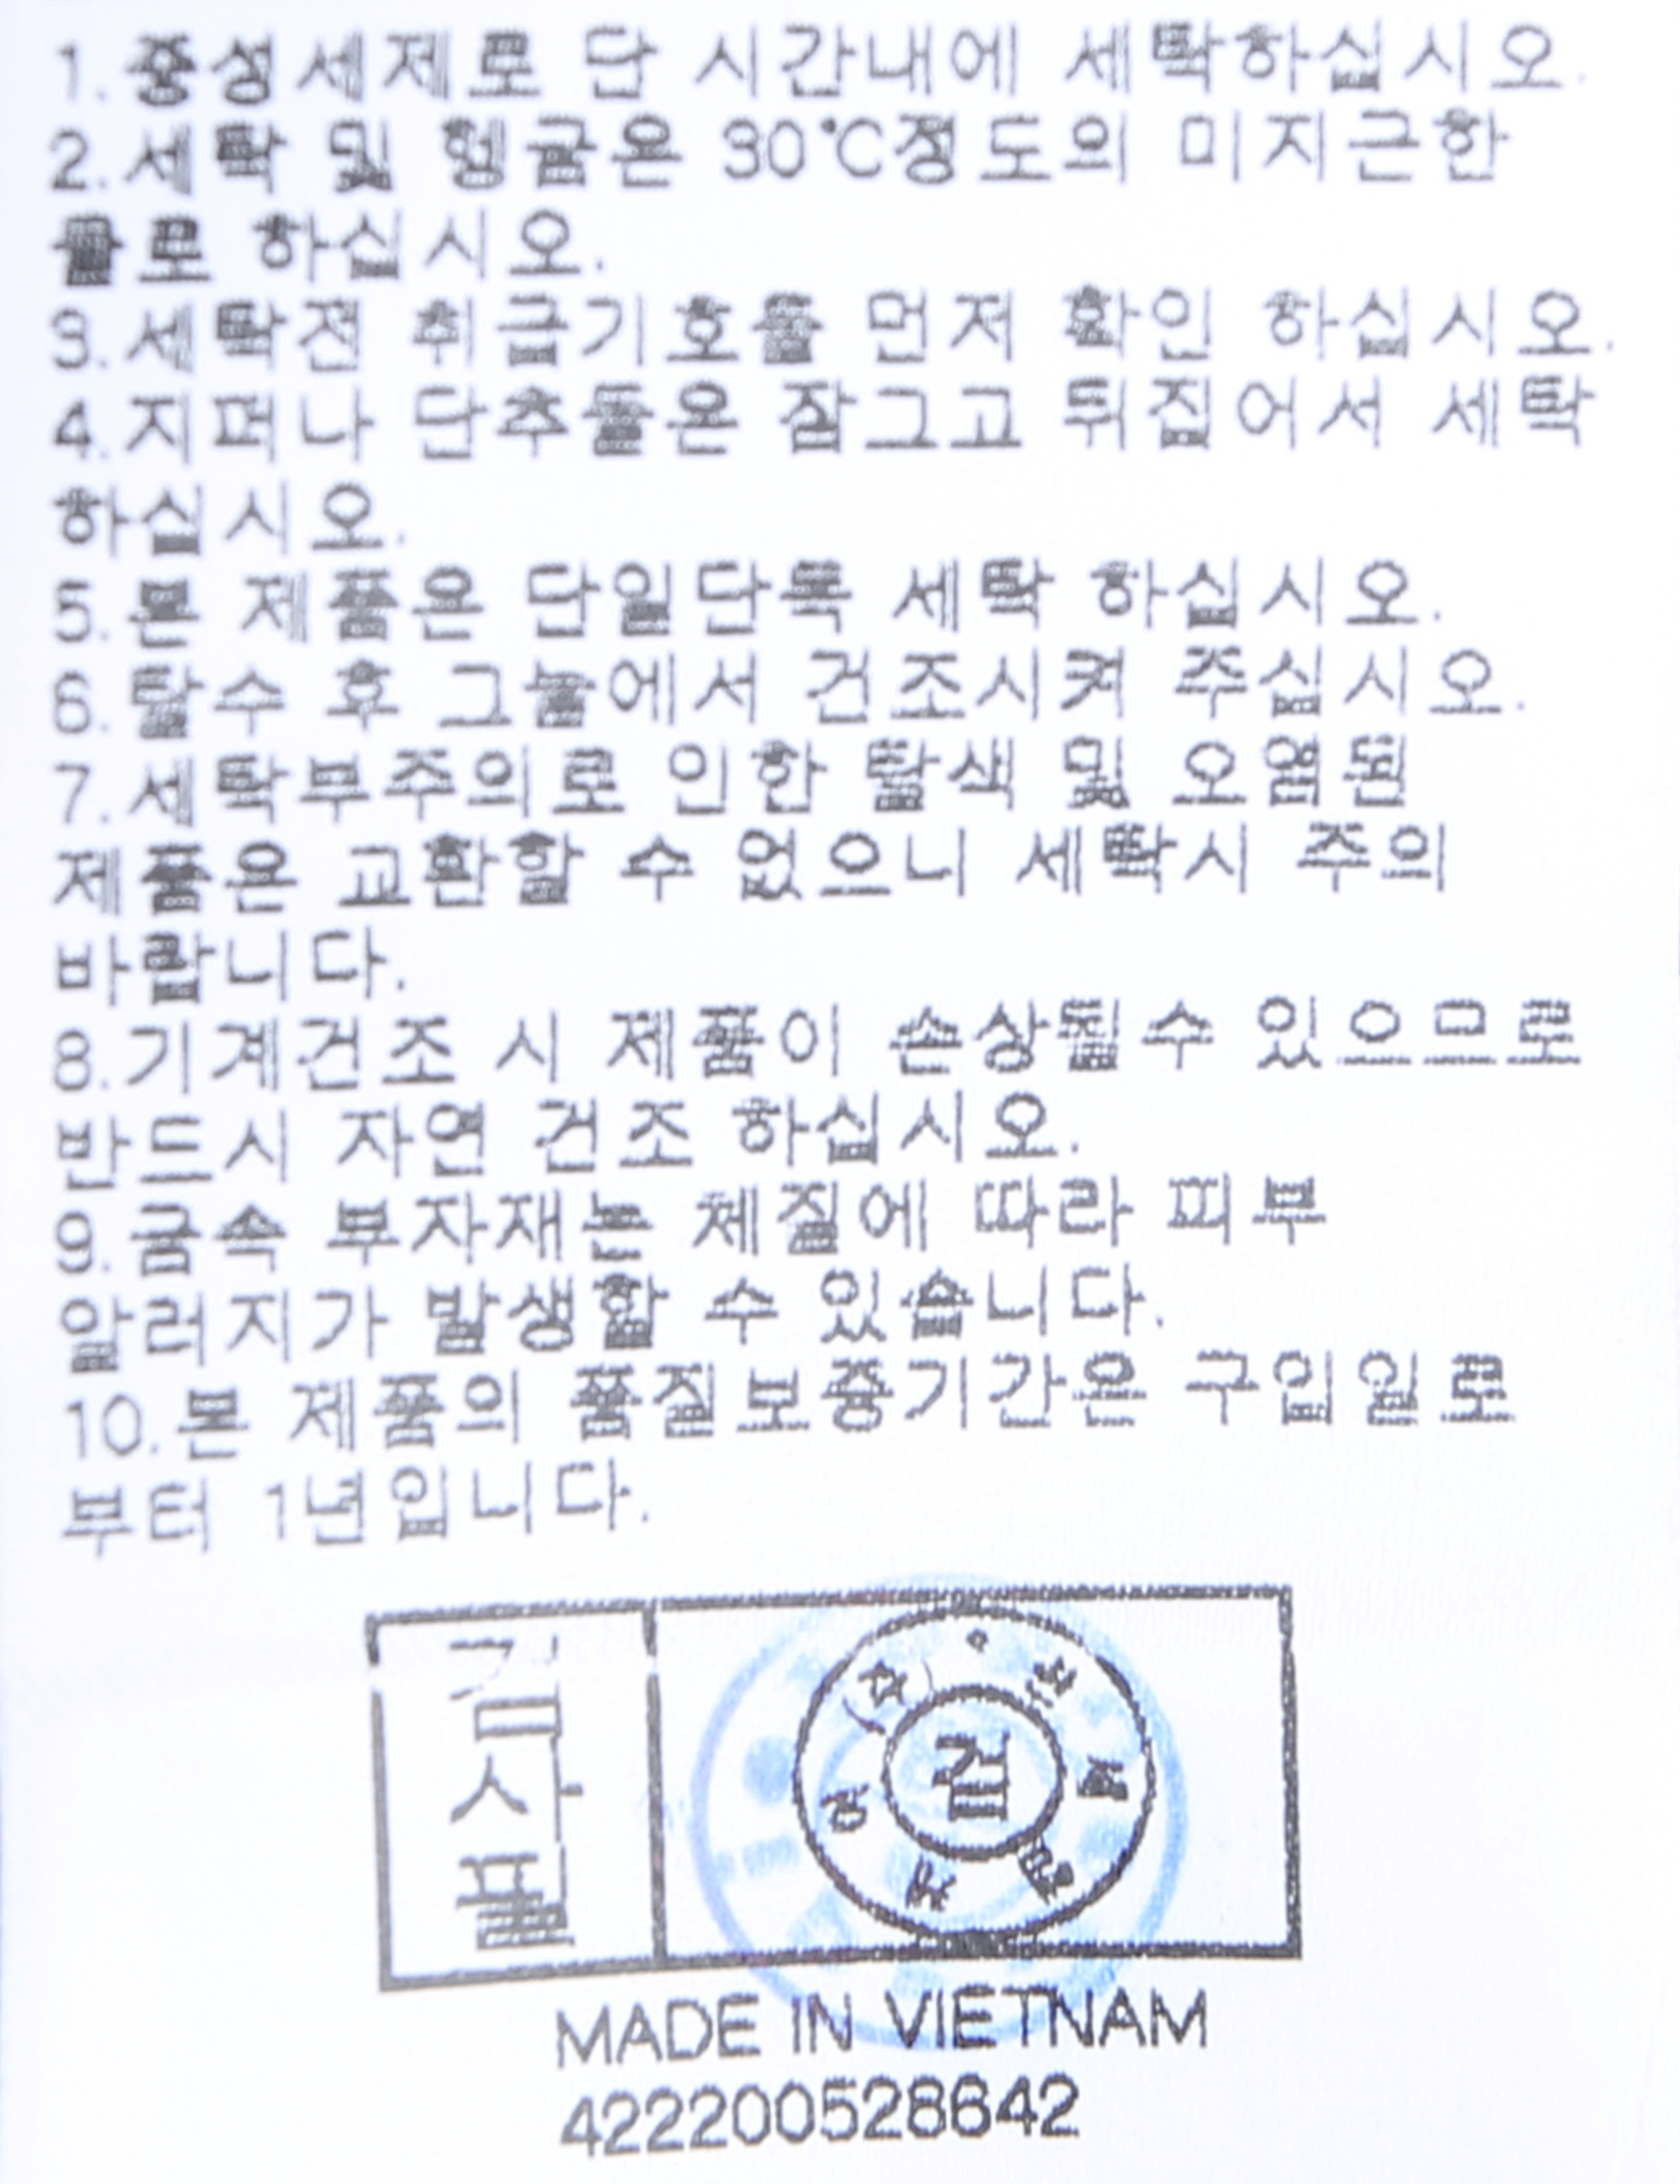 1.중성세제로 단 시간내에 세탁하십시오.
2.세탁 및 헹굼은 30℃정도의 미지근한
물로 하십시오.
3.세탁전 취급기호를 먼저 확인 하십시오.
4.지퍼나 단추들은 잠그고 뒤집어서 세탁
하십시오.
5.본 제품은 단일단독 세탁 하십시오.
6.탈수 후 그늘에서 건조시켜 주십시오.
7.세탁부주의로 인한 탈색 및 오염된
제품은 교환할 수 없으니 세탁시 주의
바랍니다.
8.기계건조 시 제품이 손상될수 있으므로
반드시 자연 건조 하십시오.
9.금속 부자재는 체질에 따라 피부
알러지가 발생할 수 있습니다.
10.본 제품의 품질보증기간은 구입일로
부터 1년입니다.
검사필
검
MADE IN VIETNAM
422200528642